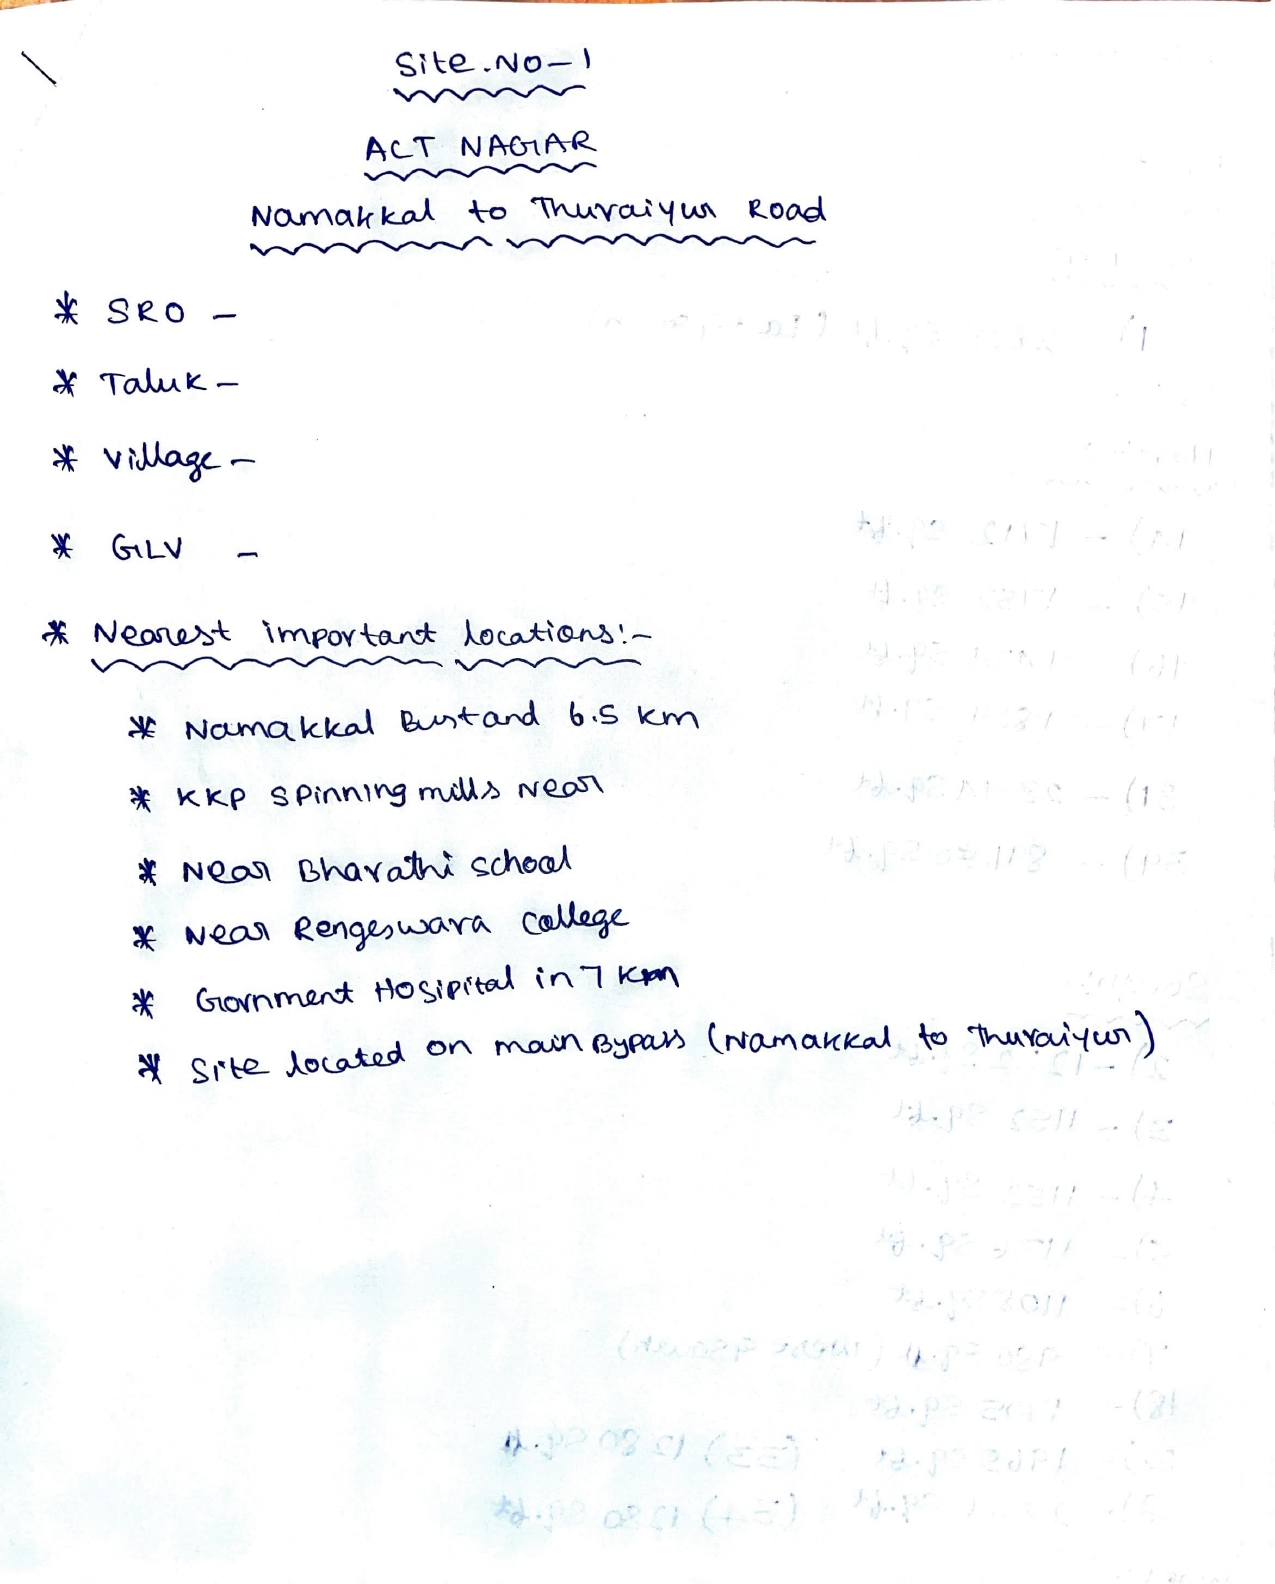 Site.No-1
ACT NAGAR
Namakkal to Thuraiyur Road
* SRO -
* Taluk -
* Village -
* GLV -
* Nearest important locations:-
* Namakkal Bustand 6.5 km
* KKP Spinning mills Near
* Near Bharathi school
* Near Rengeswara College
* Gornment Hosipital in 7 km
* Site located on main Bypass (Namakkal to Thuraiyur)